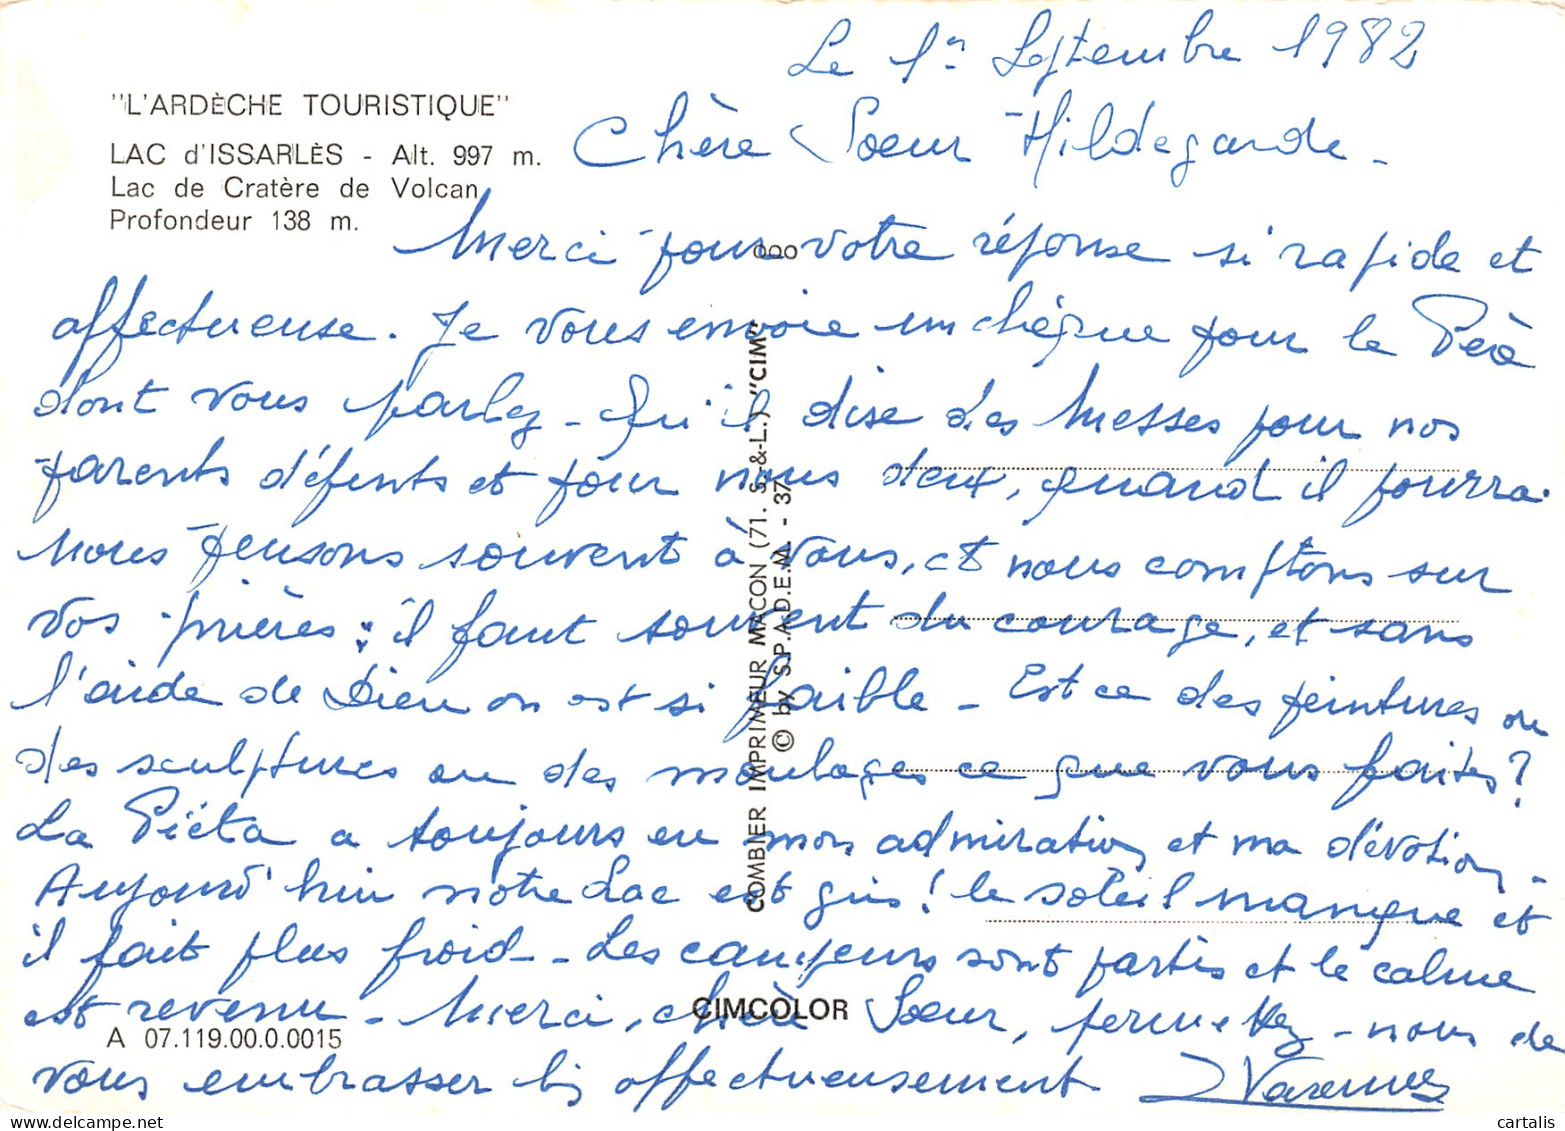 Le 1er Septembre 1982
"L'ARDÈCHE TOURISTIQUE"
LAC d'ISSARLÈS - Alt. 997 m.
Lac de Cratère de Volcan
Profondeur 138 m.
Chère Sœur Hildegarde -
Merci pour votre réponse si rapide et
affectueuse. Je vous envoie un chèque pour le Père
dont vous parlez - Qu'il dise des Messes pour nos
parents défunts et pour nous deux, quand il pourra.
Nous pensons souvent à vous, et nous comptons sur
vos prières : il faut souvent du courage, et sans
l'aide de Dieu on est si faible - Est ce des peintures ou
des sculptures ou des moulages ce que vous faites ?
La Piéta a toujours eu mon admiration et ma dévotion -
Aujourd'hui notre Lac est gris ! le soleil manque et
il fait plus froid - Les campeurs sont partis et le calme
est revenu - Merci, chère Sœur, permettez-nous de
vous embrasser bien affectueusement
COMBIER IMPRIMEUR MACON (71. S.-&-L.) "CIM"
© by S.P.A.D.E.M. - 37
CIMCOLOR
A 07.119.00.0.0015
cartalis